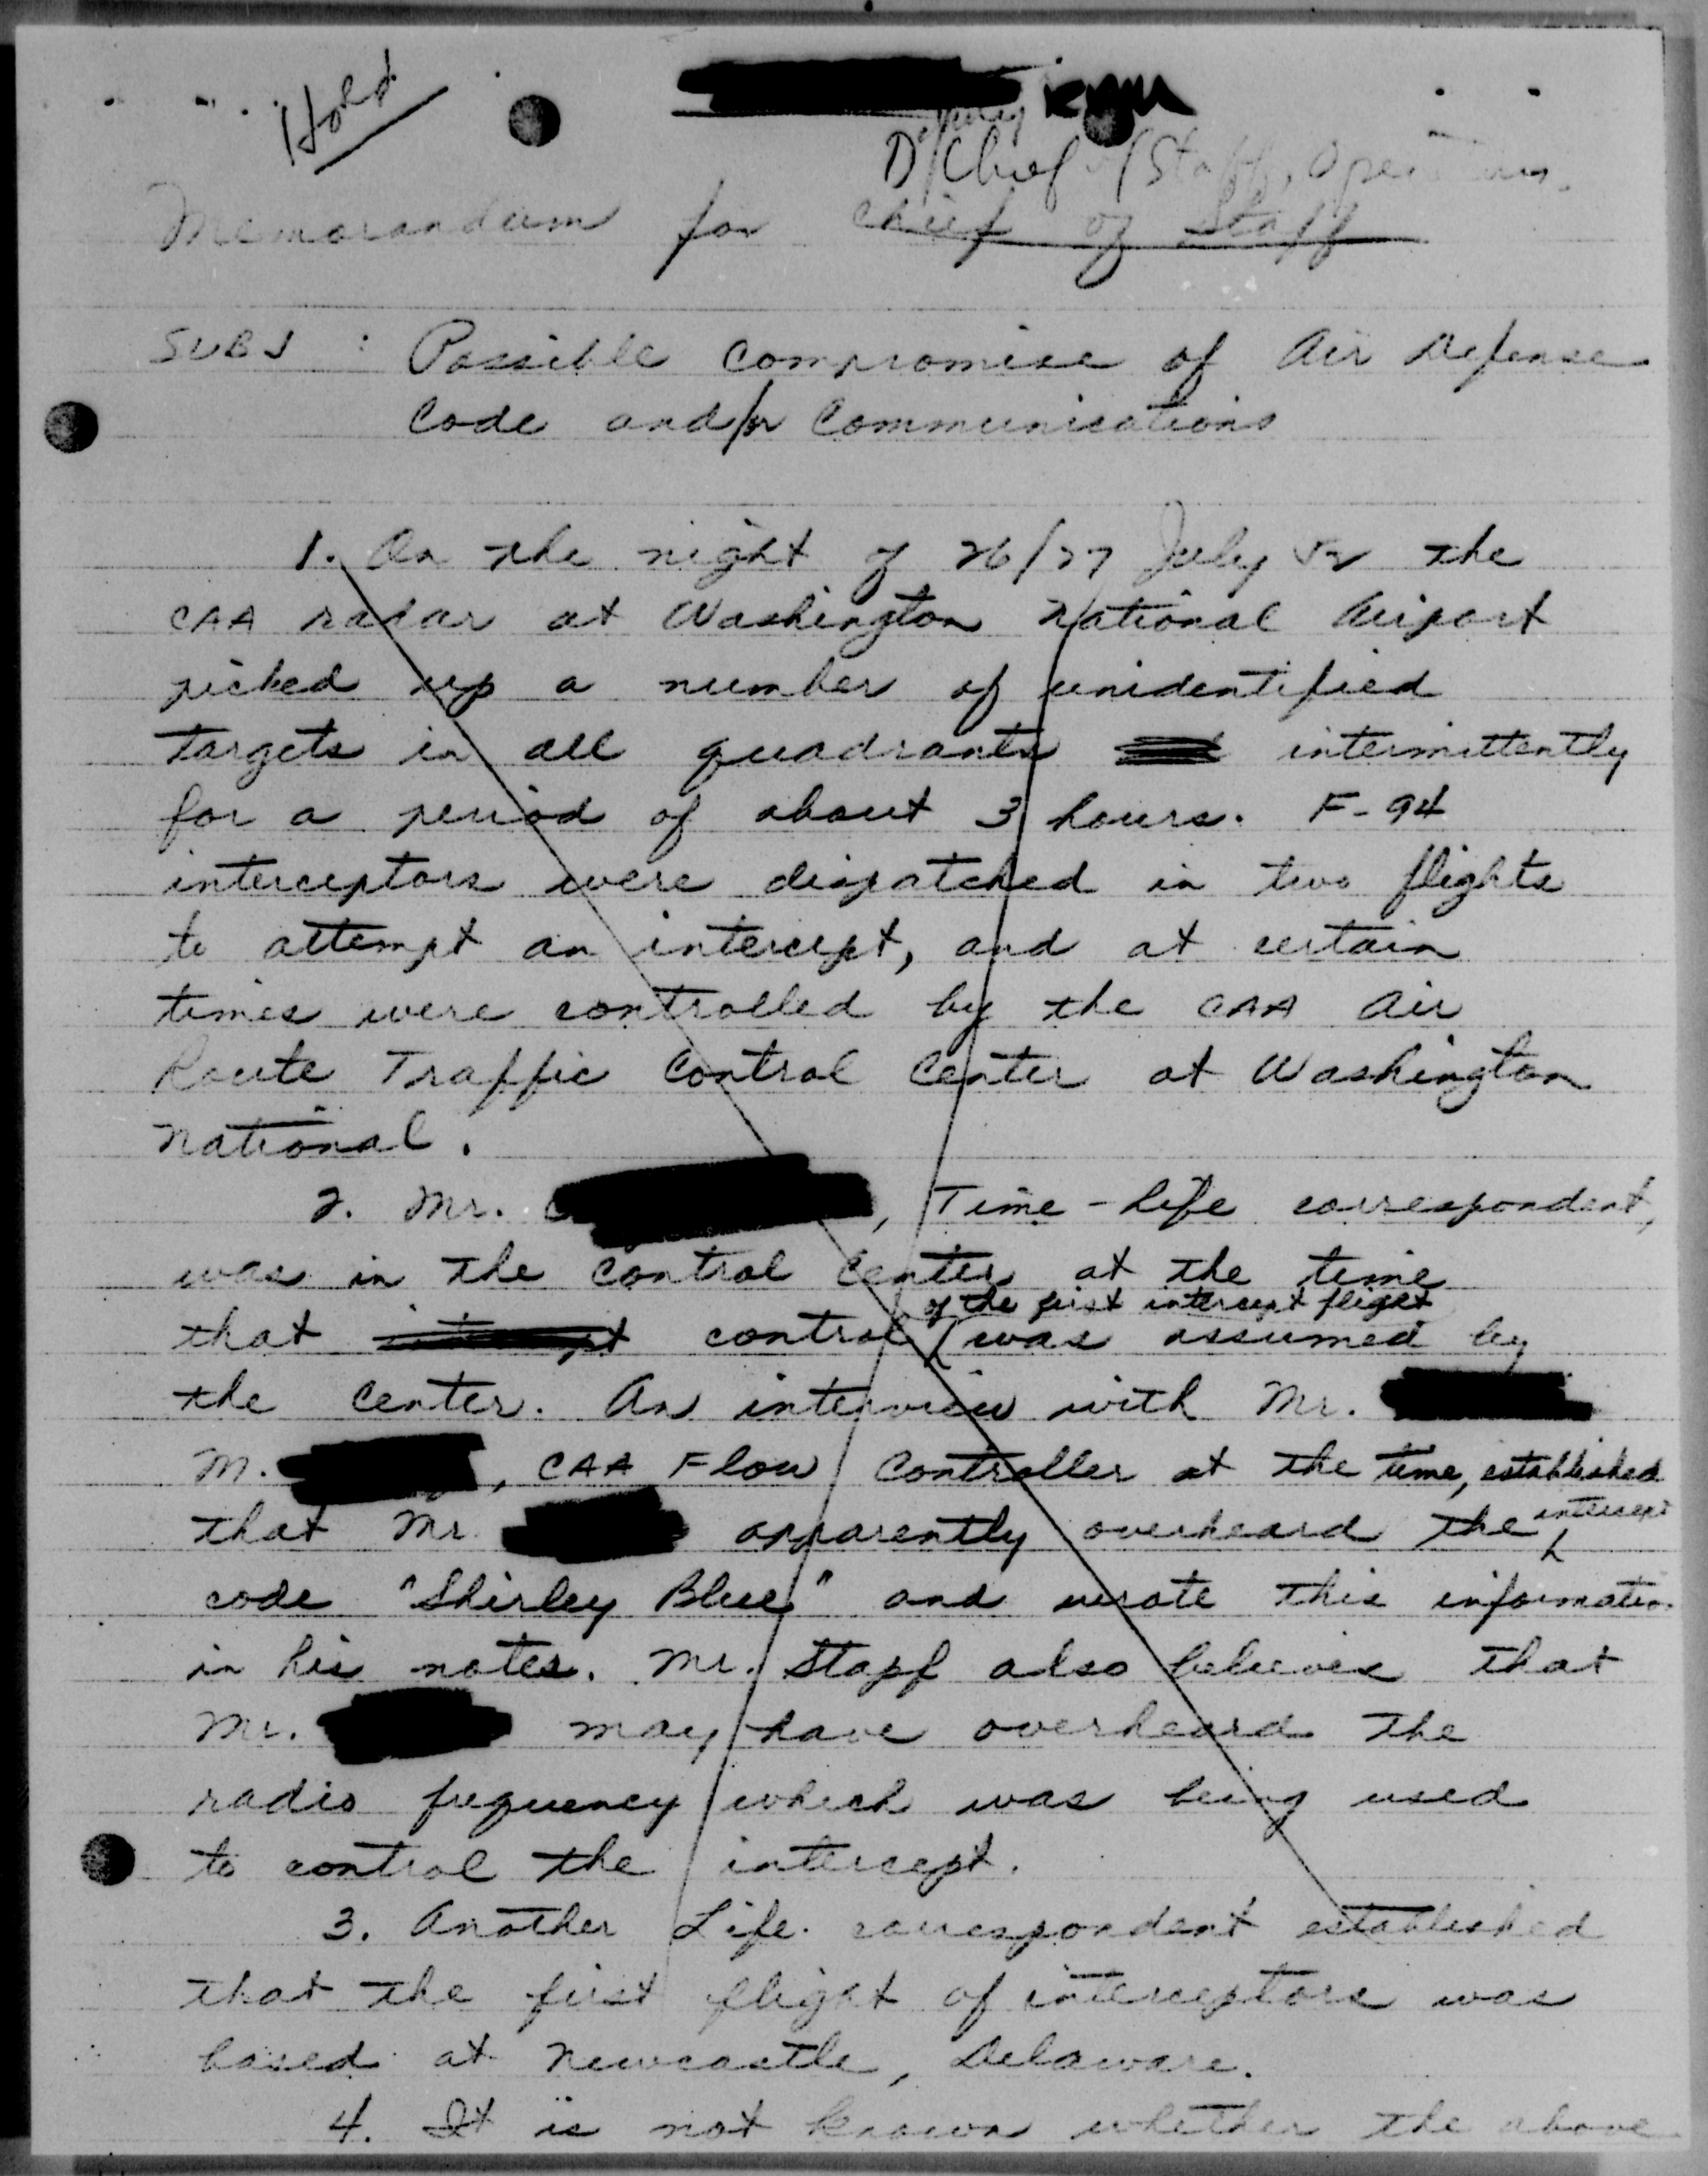 Hold
Deputy
D/Chief of Staff, Operations
Memorandum for Chief of Staff
SUBJ : Possible Compromise of Air Defense
Code and/or Communications
1. On the night of 26/27 July 52 the
CAA radar at Washington National Airport
picked up a number of unidentified
targets in all quadrants intermittently
for a period of about 3 hours. F-94
interceptors were dispatched in two flights
to attempt an intercept, and at certain
times were controlled by the CAA Air
Route Traffic Control Center at Washington
National.
2. Mr. , Time-Life correspondent,
was in the Control Center at the time
of the first intercept flight
that intercept control was assumed by
the Center. An interview with Mr.
M. , CAA Flow Controller at the time, established
that Mr. apparently overheard the intercept
code "Shirley Blue" and wrote this information
in his notes. Mr. Stapf also believes that
Mr. may have overheard the
radio frequency which was being used
to control the intercept.
3. Another Life correspondent established
that the first flight of interceptors was
based at Newcastle, Delaware.
4. It is not known whether the above